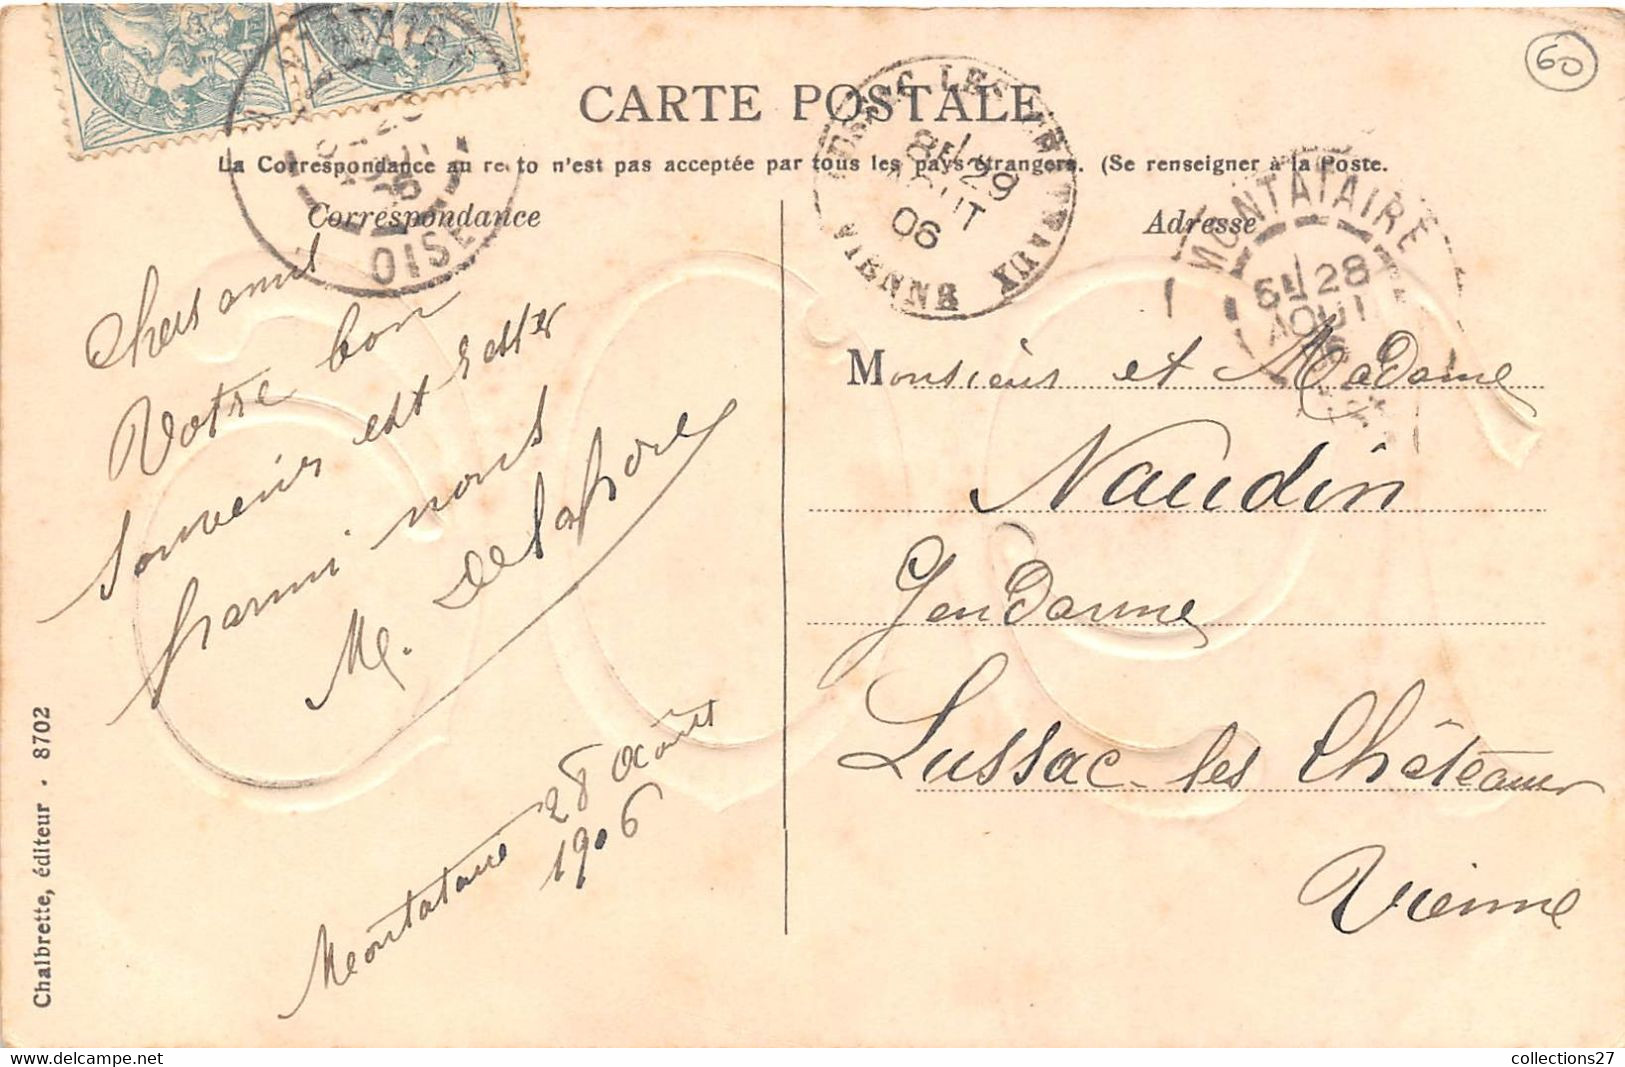 CARTE POSTALE
La Correspondance au recto n'est pas acceptée par tous les pays étrangers. (Se renseigner à la Poste.
Correspondance
Chers amis
Votre bon
souvenir est rester
parmi nous
M. Delaporte
Montataire 28 Août
1906
Adresse
Monsieur et Madame
Naudin
Gendarme
Lussac-les Châteaux
Vienne
MONTATAIRE
OISE
LUSSAC-LES-CHATEAUX
8E/29
AOUT
06
VIENNE
MONTATAIRE
6E/28
AOUT
06
60
Chalbrette, éditeur . 8702
collections27